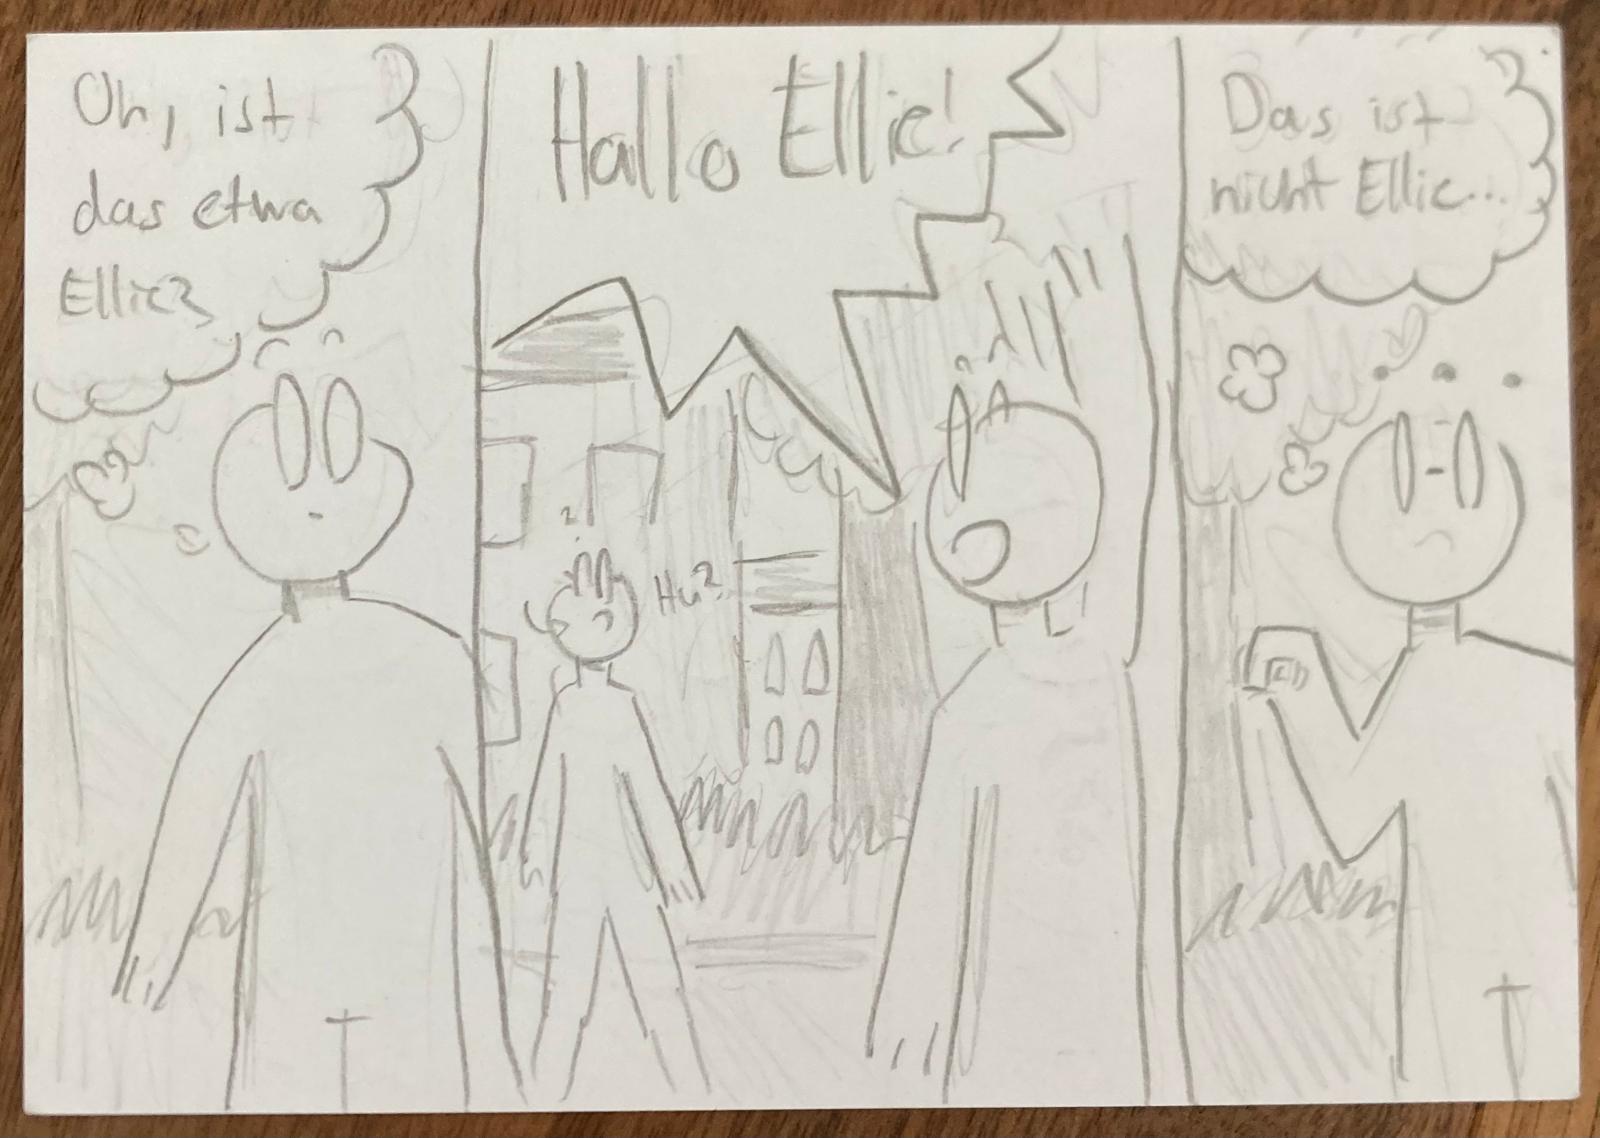 Oh, ist
das etwa
Ellie?
Hallo Ellie!
?
Hu?
Das ist
nicht Ellie...